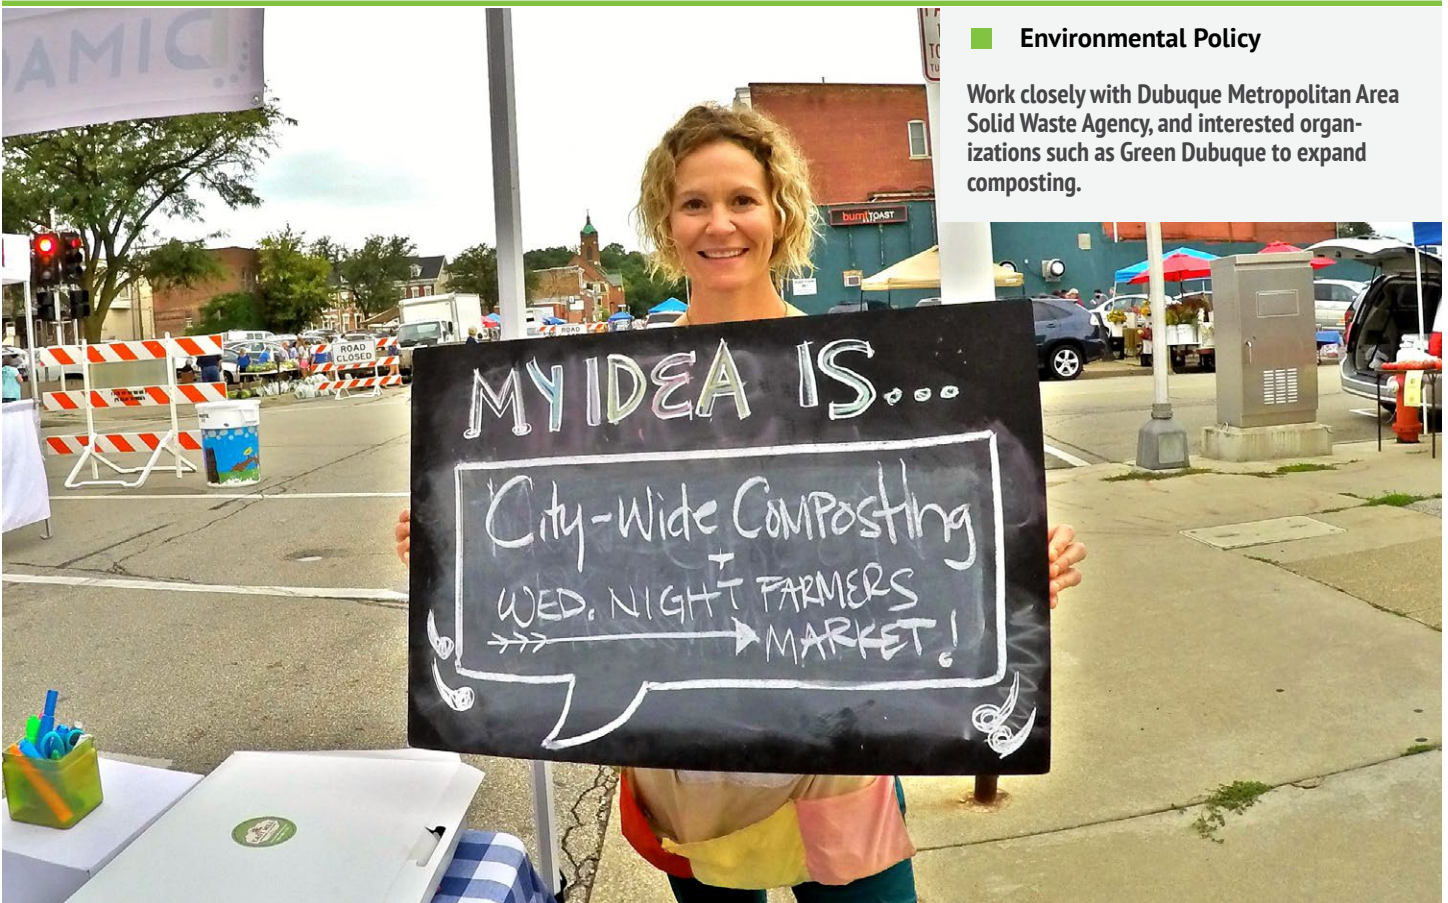 Environmental Policy
Work closely with Dubuque Metropolitan Area
Solid Waste Agency, and interested organ-
izations such as Green Dubuque to expand
composting.
burnt TOAST
ROAD
CLOSED
ROAD
MY IDEA IS...
City-Wide Composting
+
WED. NIGHT FARMERS
MARKET!